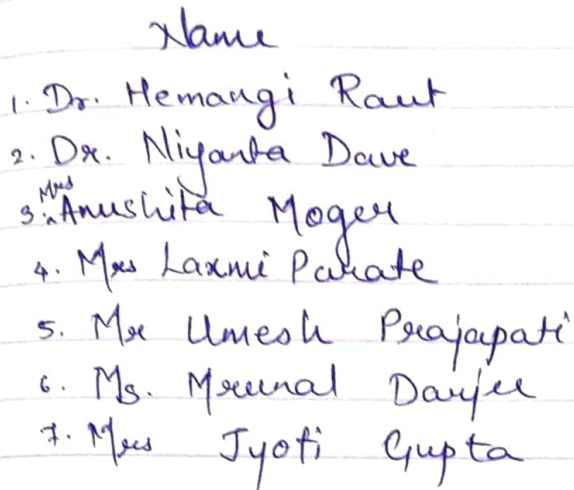 Name
1. Dr. Hemangi Raut
2. Dr. Niyanta Dave
3. Mrs Anushita Moger
4. Mrs Laxmi Parate
5. Mr Umesh Prajapati
6. Ms. Mrunal Darjee
7. Mrs Jyoti Gupta